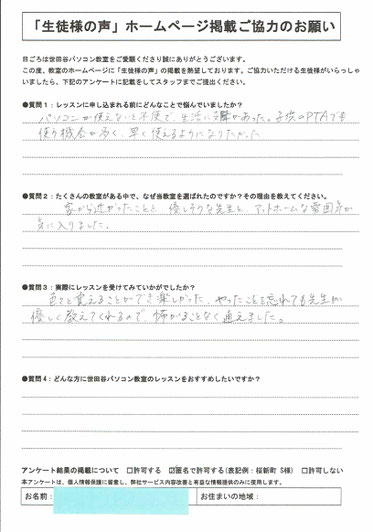 「生徒様の声」ホームページ掲載ご協力のお願い
日ごろは世田谷パソコン教室をご愛顧くださり誠にありがとうございます。
この度、教室のホームページに「生徒様の声」の掲載を熱望しております。ご協力いただける生徒様がいらっしゃ
いましたら、下記のアンケートに記載をしてスタッフまでご提出ください。
●質問1：レッスンに申し込まれる前にどんなことで悩んでいましたか？
パソコンが使えないと不便で、生活に支障があった。子供のPTAでも
使う機会が多く、早く使えるようになりたかった
●質問2：たくさんの教室がある中で、なぜ当教室を選ばれたのですか？その理由を教えてください。
家から近かったことと、優しそうな先生と、アットホームな雰囲気が
気に入りました。
●質問3：実際にレッスンを受けてみていかがでしたか？
色々と覚えることができ楽しかった。やったことを忘れても先生が
優しく教えてくれるので、怖がることなく通えました。
●質問4：どんな方に世田谷パソコン教室のレッスンをおすすめしたいですか？
アンケート結果の掲載について　□許可する　☑匿名で許可する(表記例：桜新町 S様)　□許可しない
本アンケートは、個人情報保護に留意し、弊社サービス内容改善と有益な情報提供のみに使用します。
お名前：　お住まいの地域：